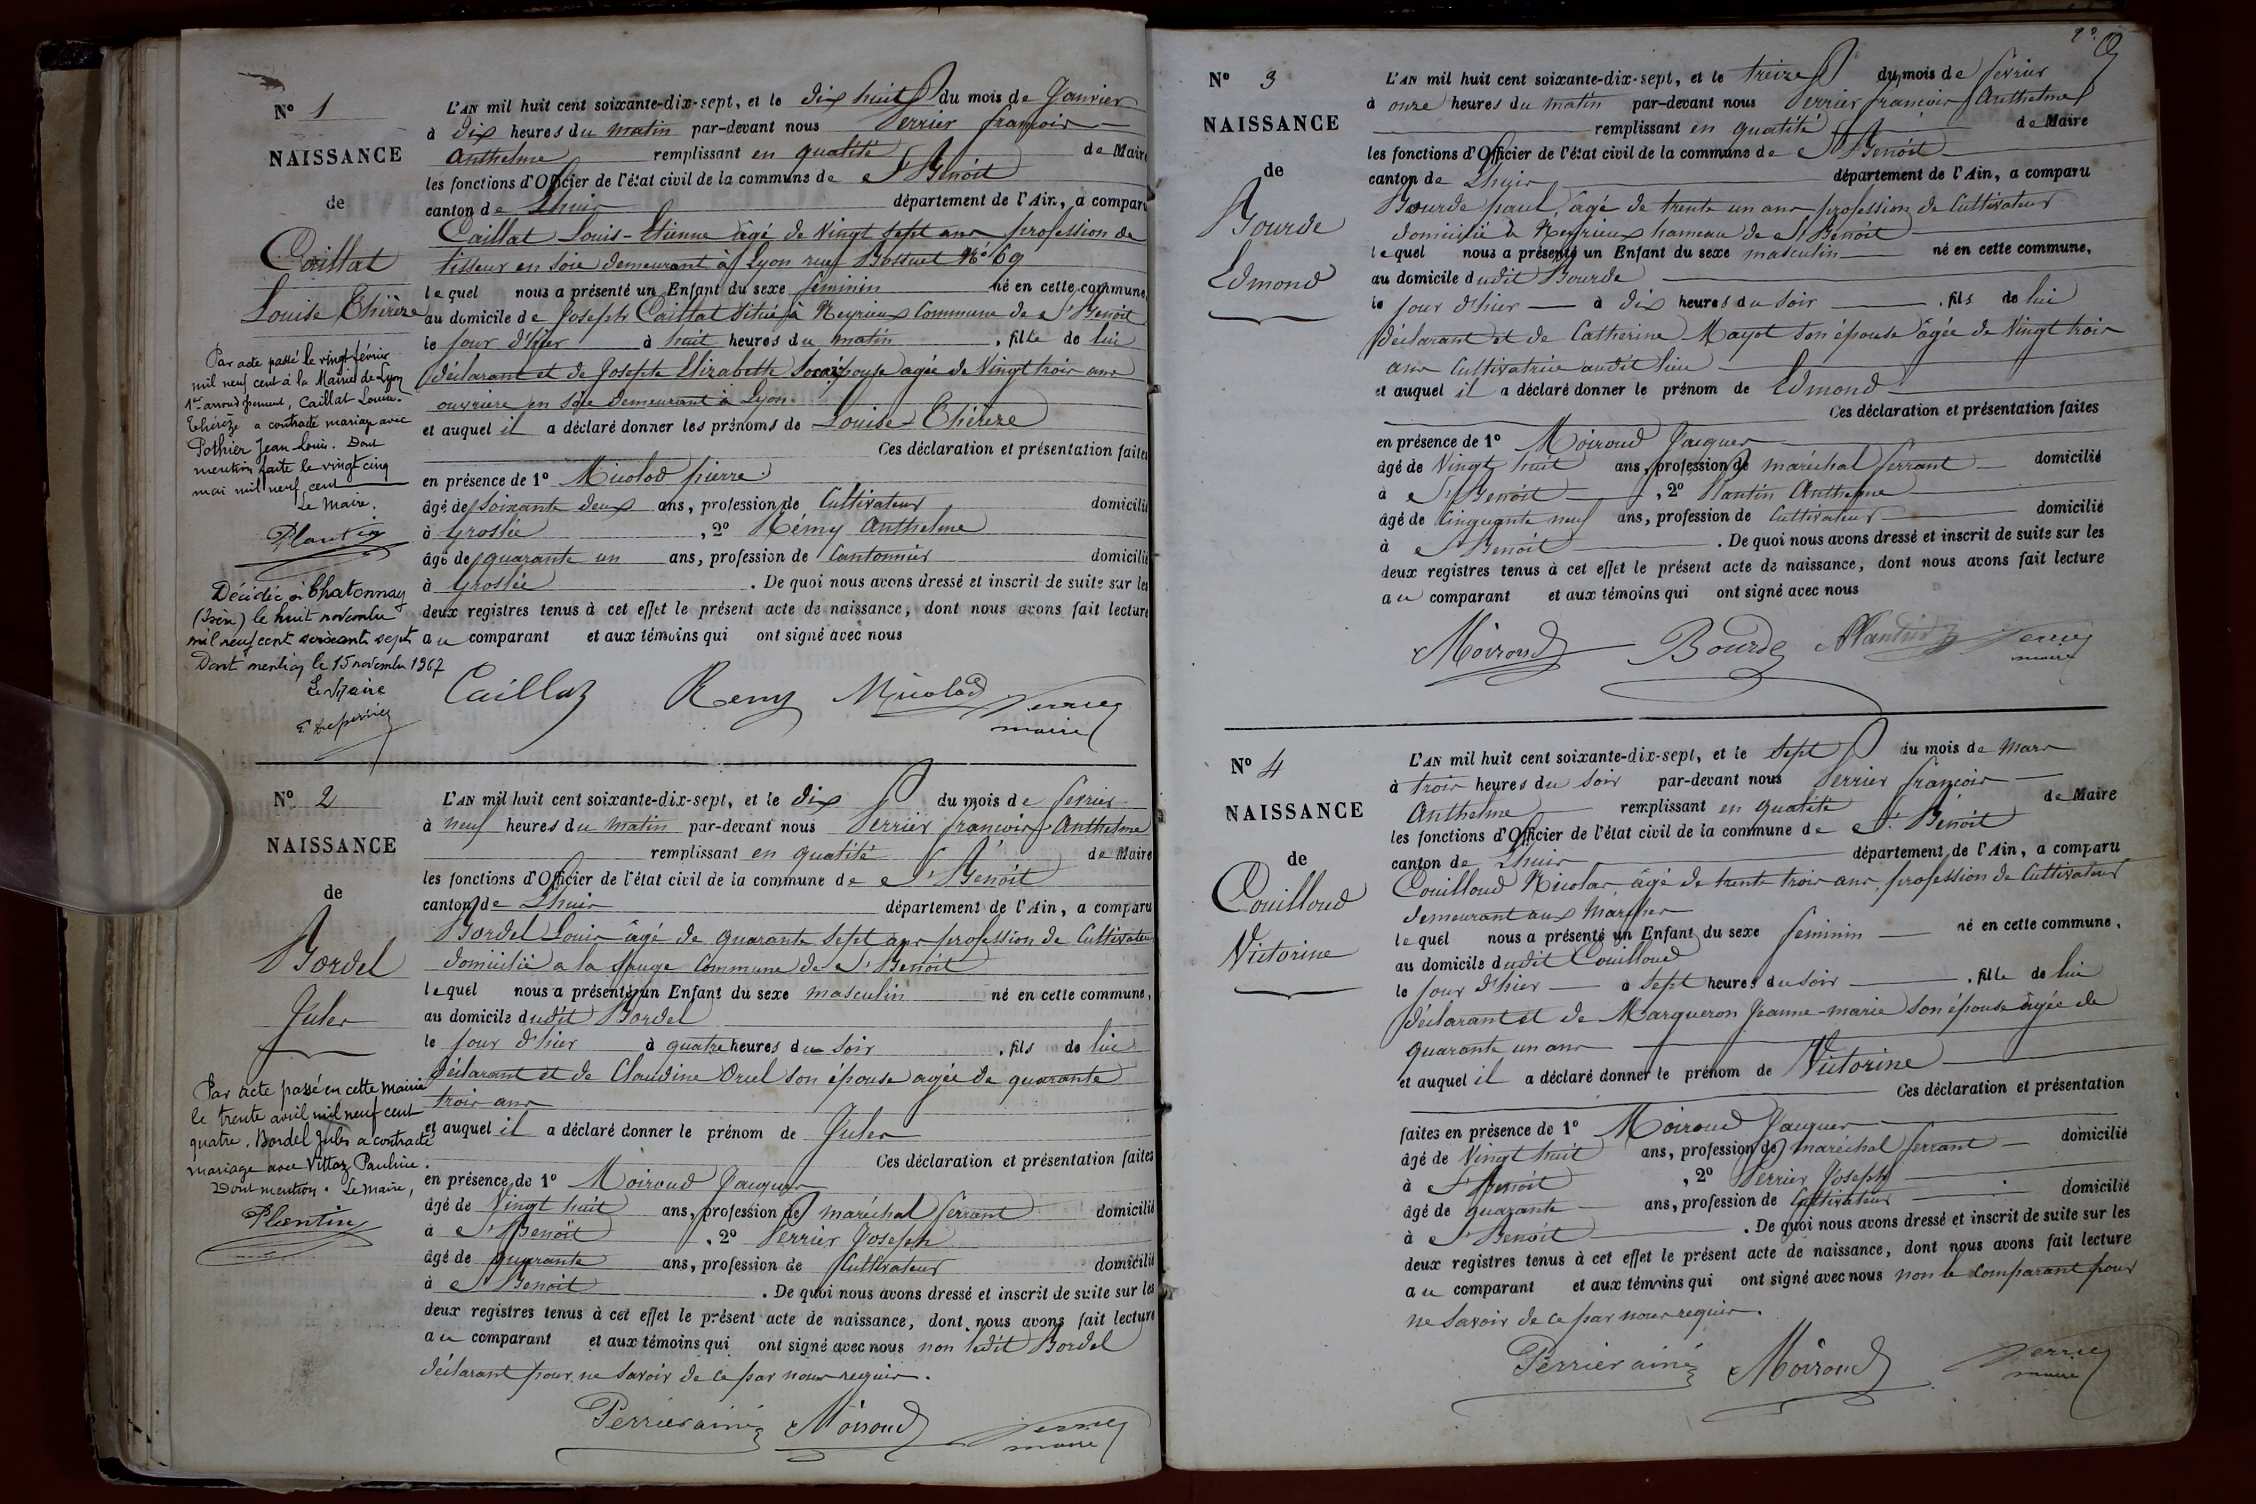 Nº 1
NAISSANCE
de
Caillat
Louise Thérèze
Par acte passé le vingt février
mil neuf cent à la Mairie de Lyon
1er arrondissement, Caillat Louise-
Thérèze a contracté mariage avec
Pothier Jean-Louis. Dont
mention faite le vingt cinq
mai mil neuf cent
Le Maire.
Plantin
Décédée à Chatonnay
(Isère) le huit novembre
mil neuf cent soixante sept
Dont mention le 15 novembre 1967
Le Maire
L'AN mil huit cent soixante-dix-sept, et le dix huit du mois de Janvier
à dix heures du matin par-devant nous Perrier françois
Anthelme remplissant en qualité de Maire
les fonctions d'Officier de l'état civil de la commune de St Benoit
canton de Lhuis département de l'Ain, a comparu
Caillat Louis-Etienne âgé de Vingt sept ans profession de
tisseur en soie demeurant à Lyon rue Bossuet Nº 69
lequel nous a présenté un Enfant du sexe féminin né en cette commune,
au domicile de Joseph Caillat situé à Neyrieux Commune de St Benoit
le jour d'hier à huit heures du matin, fille de lui
déclarant et de Josephe Elizabeth son épouse agée de Vingt trois ans
ouvrière en soie demeurant à Lyon.
et auquel il a déclaré donner les prénoms de Louise-Thérèze
Ces déclaration et présentation faites
en présence de 1º Micolod pierre
âgé de soixante deux ans, profession de Cultivateur domicilié
à Groslée, 2º Rémy Anthelme
âgé de quarante un ans, profession de Cantonnier domicilié
à Groslée. De quoi nous avons dressé et inscrit de suite sur les
deux registres tenus à cet effet le présent acte de naissance, dont nous avons fait lecture
au comparant et aux témoins qui ont signé avec nous
Caillat Remy Micolod Perrier
maire
Nº 2
NAISSANCE
de
Bordel
Jules
Par acte passé en cette mairie
le trente avril mil neuf cent
quatre, Bordel Jules a contracté
mariage avec Vittoz Pauline.
Dont mention. Le Maire,
Plantin
L'AN mil huit cent soixante-dix-sept, et le dix du mois de fevrier
à neuf heures du matin par-devant nous Perrier françois Anthelme
remplissant en qualité de Maire
les fonctions d'Officier de l'état civil de la commune de St Benoit
canton de Lhuis département de l'Ain, a comparu
Bordel Louis âgé de quarante sept ans profession de Cultivateur
domicilié a la Sauge Commune de St Benoit
lequel nous a présenté un Enfant du sexe masculin né en cette commune,
au domicile dudit Bordel
le jour d'hier à quatre heures du soir, fils de lui
déclarant et de Claudine Orcel son épouse agée de quarante
trois ans
et auquel il a déclaré donner le prénom de Jules
Ces déclaration et présentation faites
en présence de 1º Moiroud Jacques
âgé de Vingt huit ans, profession de maréchal ferrant domicilié
à St Benoit, 2º Perrier Joseph
âgé de quarante ans, profession de Cultivateur domicilié
à St Benoit. De quoi nous avons dressé et inscrit de suite sur les
deux registres tenus à cet effet le présent acte de naissance, dont nous avons fait lecture
au comparant et aux témoins qui ont signé avec nous non ledit Bordel
déclarant pour ne savoir de ce par nous requis.
Perrier ainé Moiroud Perrier
maire
Nº 3
NAISSANCE
de
Bourde
Edmond
L'AN mil huit cent soixante-dix-sept, et le treize du mois de fevrier
à onze heures du matin par-devant nous Perrier françois Anthelme
remplissant en qualité de Maire
les fonctions d'Officier de l'état civil de la commune de St Benoit
canton de Lhuis département de l'Ain, a comparu
Bourde paul, âgé de trente un ans profession de Cultivateur
domicilié à Neyrieux hameau de St Benoit
lequel nous a présenté un Enfant du sexe masculin né en cette commune,
au domicile dudit Bourde
le jour d'hier à dix heures du soir, fils de lui
déclarant et de Catherine Mayot son épouse âgée de Vingt trois
ans Cultivatrice audit lieu
et auquel il a déclaré donner le prénom de Edmond
Ces déclaration et présentation faites
en présence de 1º Moiroud Jacques
âgé de Vingt huit ans, profession de maréchal ferrant domicilié
à St Benoit, 2º Plantin Anthelme
âgé de Cinquante neuf ans, profession de Cultivateur domicilié
à St Benoit. De quoi nous avons dressé et inscrit de suite sur les
deux registres tenus à cet effet le présent acte de naissance, dont nous avons fait lecture
au comparant et aux témoins qui ont signé avec nous
Moiroud Bourde Plantin Perrier
maire
Nº 4
NAISSANCE
de
Couilloud
Victorine
L'AN mil huit cent soixante-dix-sept, et le sept du mois de mars
à trois heures du soir par-devant nous Perrier françois
Anthelme remplissant en qualité de Maire
les fonctions d'Officier de l'état civil de la commune de St Benoit
canton de Lhuis département de l'Ain, a comparu
Couilloud Nicolas, âgé de trente trois ans, profession de Cultivateur
demeurant aux Marches
lequel nous a présenté un Enfant du sexe féminin né en cette commune,
au domicile dudit Couilloud
le jour d'hier à sept heures du soir, fille de lui
déclarant et de Marqueron Jeanne-marie son épouse âgée de
quarante un ans
et auquel il a déclaré donner le prénom de Victorine
Ces déclaration et présentation
faites en présence de 1º Moiroud Jacques
âgé de Vingt huit ans, profession de maréchal ferrant domicilié
à St Benoit, 2º Perrier Joseph
âgé de quarante ans, profession de Cultivateur domicilié
à St Benoit. De quoi nous avons dressé et inscrit de suite sur les
deux registres tenus à cet effet le présent acte de naissance, dont nous avons fait lecture
au comparant et aux témoins qui ont signé avec nous non le comparant pour
ne savoir de ce par nous requis.
Perrier ainé Moiroud Perrier
maire